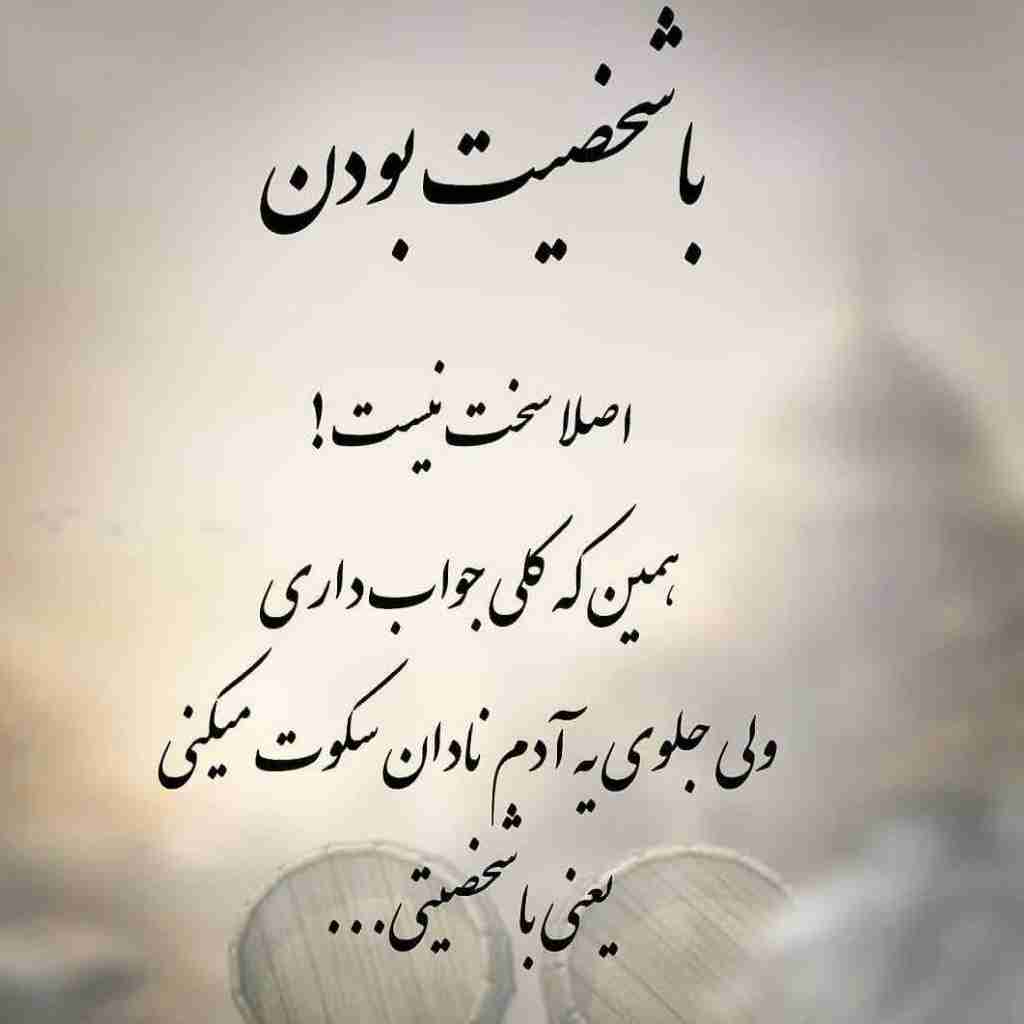 با شخصیت بودن
اصلا سخت نیست!
همین که کلی جواب داری
ولی جلوی یه آدم نادان سکوت میکنی
یعنی با شخصیتی...